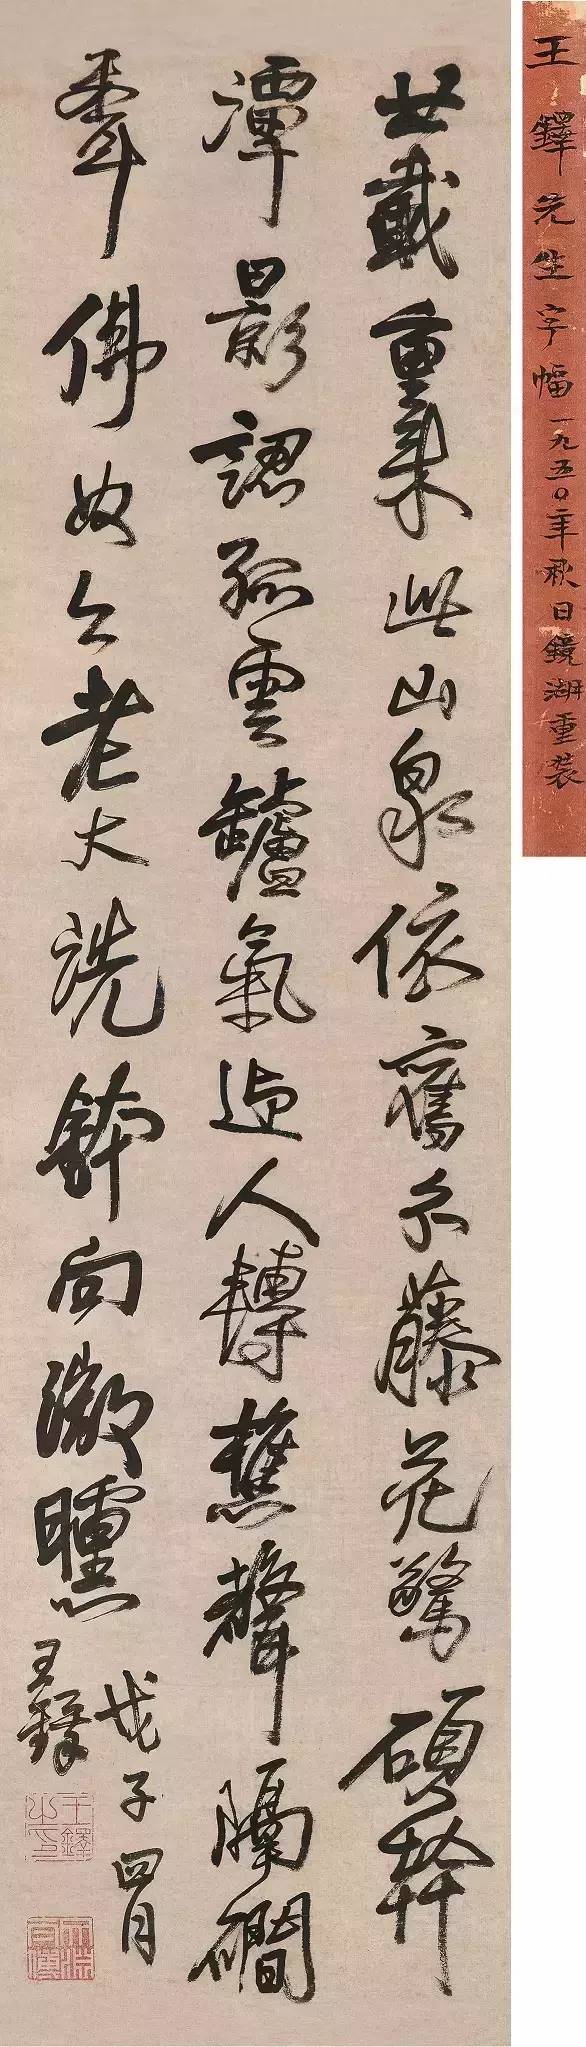 王鐸先生字幅一九五〇年秋日鏡湖重裝
廿載重來此山泉依舊分藤花驚碩幹
潭影認孤雲罏氣迎人轉蕉聲隔礀
聞佛奴今老大洗鉢向微曛
戊子四月
王鐸
王鐸之印